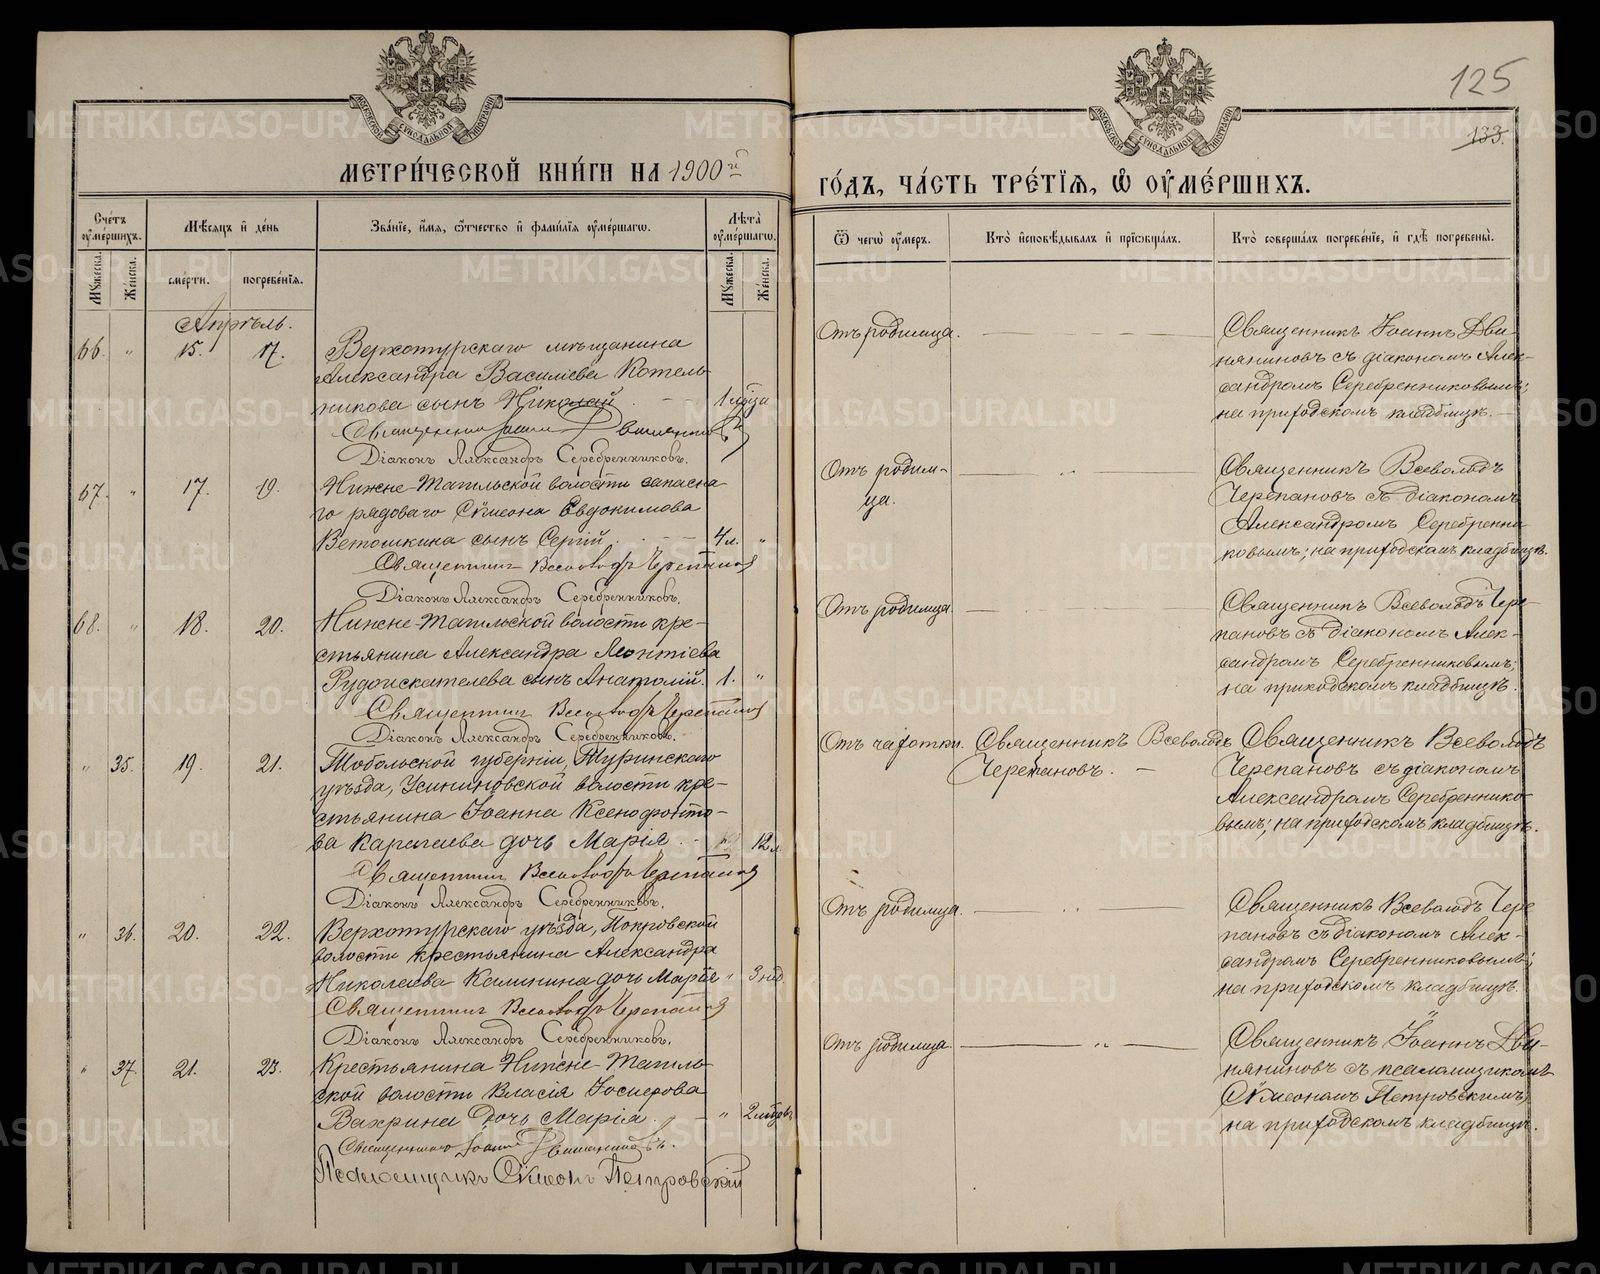 125
133.
МЕТРИ́ЧЕСКОЙ КНИ́ГИ НА 1900й
ГО́ДЪ, ЧА́СТЬ ТРЕ́ТІѦ, Ѿ ОУМЕ́РШИХЪ.
Сче́тъ оуме́ршихъ.
Мѣ́сяцъ и҆ де́нь
Зва́ніе, и҆́мя, ѻ҆́тчество и҆ фами́лія оуме́ршагѡ.
Лѣ́та оуме́ршагѡ.
Ѿ чегѡ̀ оу́меръ.
Кто̀ и҆сповѣ́дывалъ и҆ прїѻбща́лъ.
Кто̀ соверша́лъ погребе́ніе, и҆ гдѣ̀ погребены̀.
Му́жеска.
Же́нска.
сме́рти.
погребе́нія.
Му́жеска.
Же́нска.
Апрѣль.
66. " 15. 17.
Верхотурскаго мѣщанина
Александра Василіева Котель-
никова сынъ Николай 1 мѣсяца
Священникъ Іоаннъ Двиняниновъ
Діаконъ Александръ Серебренниковъ.
Отъ родимца.
Священникъ Іоаннъ Дви-
няниновъ съ діакономъ Алек-
сандромъ Серебренниковымъ;
на приходскомъ кладбищѣ.
67. " 17. 19.
Нижне-Тагильской волости запасна-
го рядоваго Сѵмеона Евдокимова
Ветошкина сынъ Сергій. 4 л. "
Священникъ Всеволодъ Черепановъ
Діаконъ Александръ Серебренниковъ.
Отъ родим-
ца.
Священникъ Всеволодъ
Черепановъ съ діакономъ
Александромъ Серебренни-
ковымъ; на приходскомъ кладбищѣ.
68. " 18. 20.
Нижне-Тагильской волости кре-
стьянина Александра Леонтіева
Рудоискателева сынъ Анатолій. 1. "
Священникъ Всеволодъ Черепановъ
Діаконъ Александръ Серебренниковъ.
Отъ родимца.
Священникъ Всеволодъ Чере-
пановъ съ діакономъ Алек-
сандромъ Серебренниковымъ;
на приходскомъ кладбищѣ.
" 35. 19. 21.
Тобольской губерніи, Туринскаго
уѣзда, Усениновской волости кре-
стьянина Іоанна Ксенофонто-
ва дочь Марія 12 л.
Священникъ Всеволодъ Черепановъ
Діаконъ Александръ Серебренниковъ.
Отъ чахотки.
Священникъ Всеволодъ
Черепановъ.
Священникъ Всеволодъ
Черепановъ съ діакономъ
Александромъ Серебреннико-
вымъ; на приходскомъ кладбищѣ.
" 36. 20. 22.
Верхотурскаго уѣзда, Покровской
волости крестьянина Александра
Николаева Калинина дочь Марія " 3 нед.
Священникъ Всеволодъ Черепановъ
Діаконъ Александръ Серебренниковъ.
Отъ родимца.
Священникъ Всеволодъ Чере
пановъ съ діакономъ Алек-
сандромъ Серебренниковымъ;
на приходскомъ кладбищѣ.
" 37. 21. 23.
Крестьянина Нижне-Тагиль-
ской волости Власія Іосифова
Вахрина дочь Марія. " 2 мѣсяцовъ
Священникъ Іоаннъ Двиняниновъ.
Псаломщикъ Сѵмеонъ Петровскій
Отъ родимца.
Священникъ Іоаннъ Дви-
няниновъ съ псаломщикомъ
Сѵмеономъ Петровскимъ;
на приходскомъ кладбищѣ.